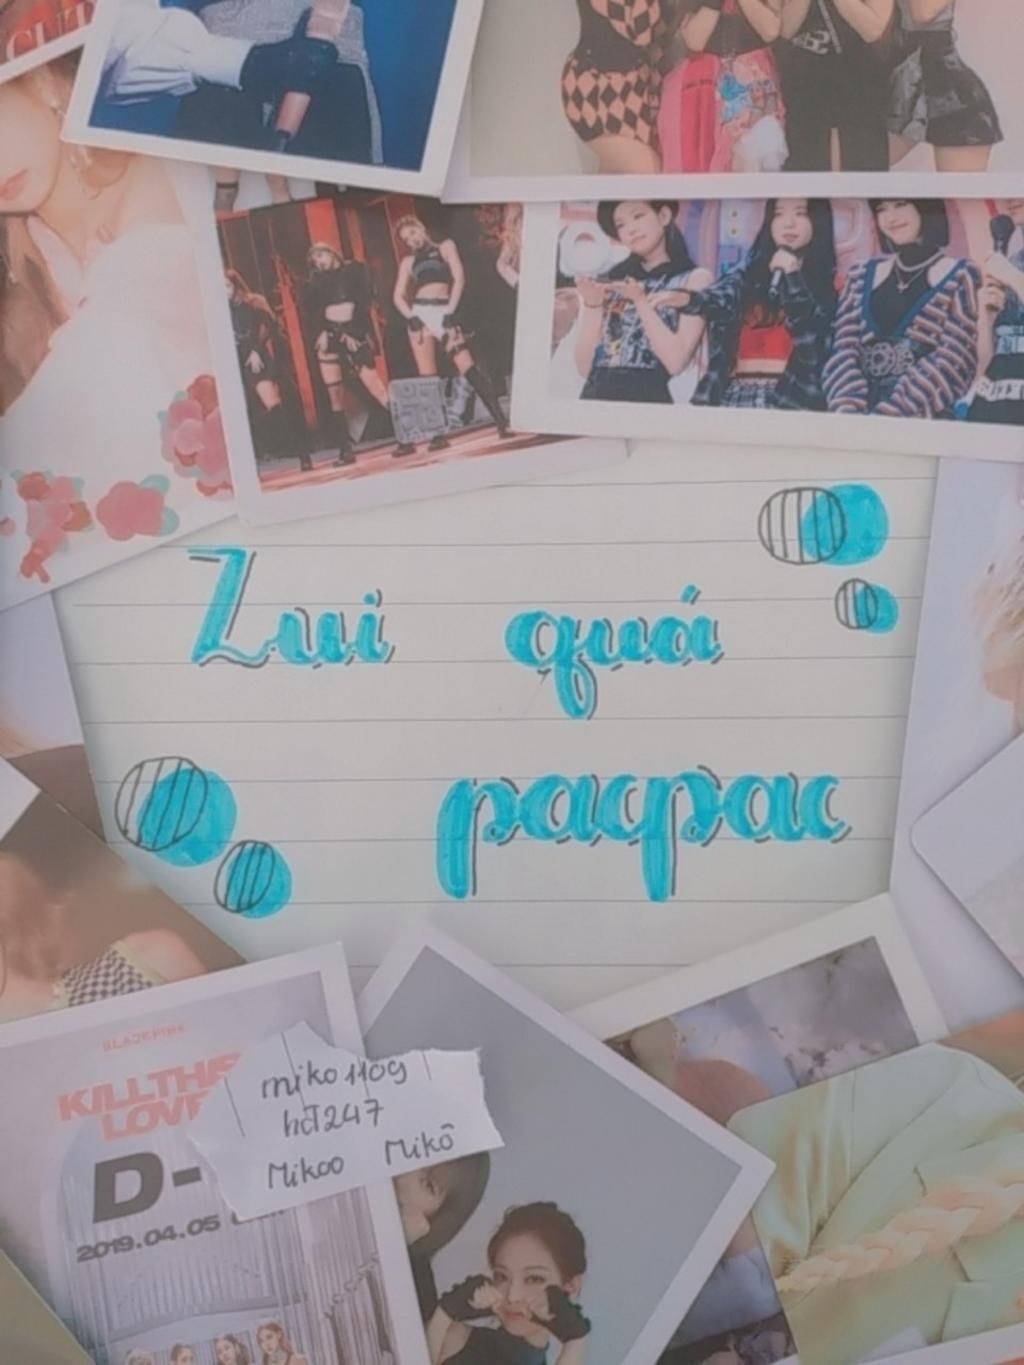 Zui quá
pacpac
BLACKPINK
KILL THIS
LOVE
D-
2019.04.05
miko1109
hdT247
Mikoo Mikô